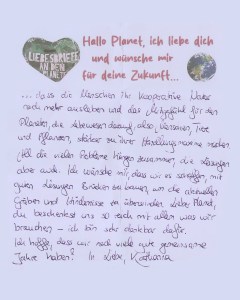 LIEBESBRIEFE
AN DEN
PLANETEN
Hallo Planet, ich liebe dich
und wünsche mir
für deine Zukunft...
... dass die Menschen ihr kooperatives
noch mehr ausleben und das Mitgefühl für den
Planeten, die Lebewesen darauf, also Menschen, Tiere
und Pflanzen, stärker zu ihrer Handlungsmaxime machen.
All die vielen Probleme hängen zusammen, die Lösungen
aber auch. Ich wünsche mir, dass wir es schaffen, mit
guten Lösungen Brücken zu bauen, um die aktuellen
Gräben und Hindernisse zu überwinden. Lieber Planet,
du beschenkst uns so reich mit allem was wir
brauchen - ich bin sehr dankbar dafür.
Ich hoffe, dass wir noch viele gute gemeinsame
Jahre haben! In Liebe, Katharina